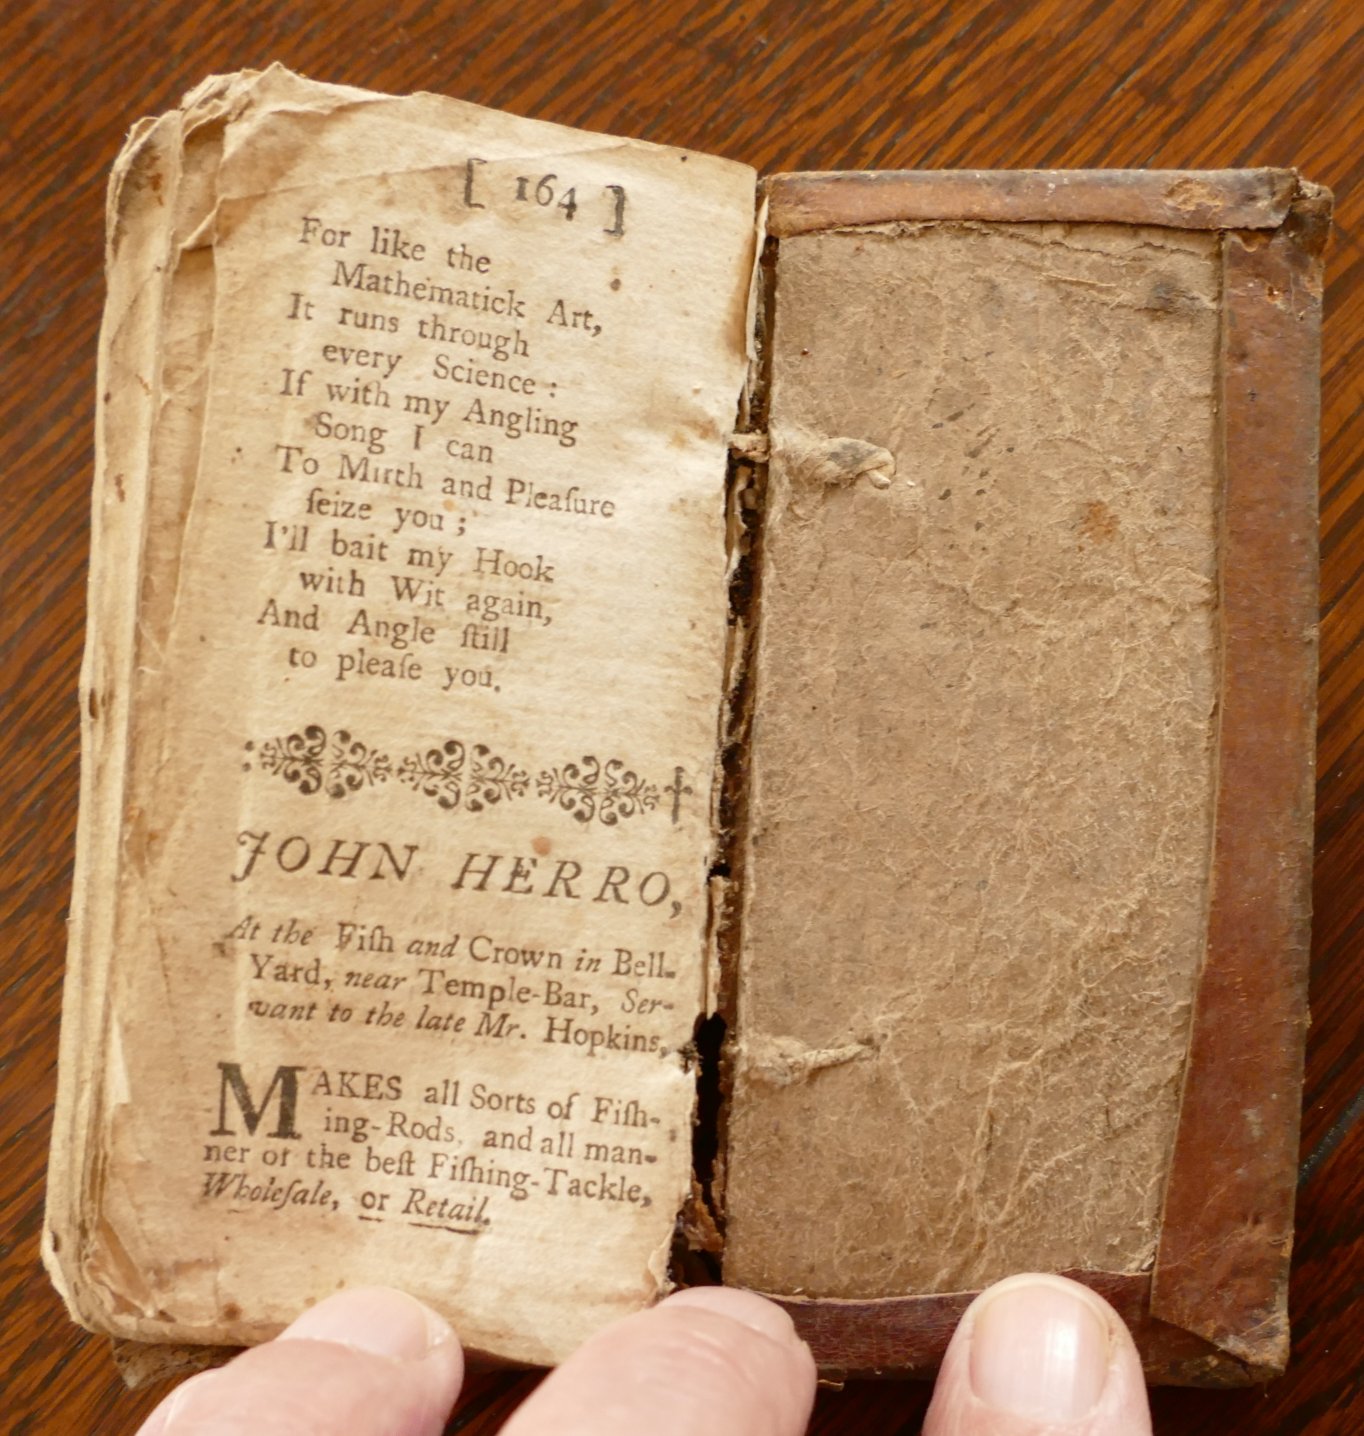 [ 164 ]
For like the
Mathematick Art,
It runs through
every Science :
If with my Angling
Song I can
To Mirth and Pleaſure
ſeize you ;
I'll bait my Hook
with Wit again,
And Angle ſtill
to pleaſe you.
JOHN HERRO,
At the Fiſh and Crown in Bell-
Yard, near Temple-Bar, Ser-
vant to the late Mr. Hopkins,
MAKES all Sorts of Fiſh-
ing-Rods, and all man-
ner of the beſt Fiſhing-Tackle,
Wholeſale, or Retail.